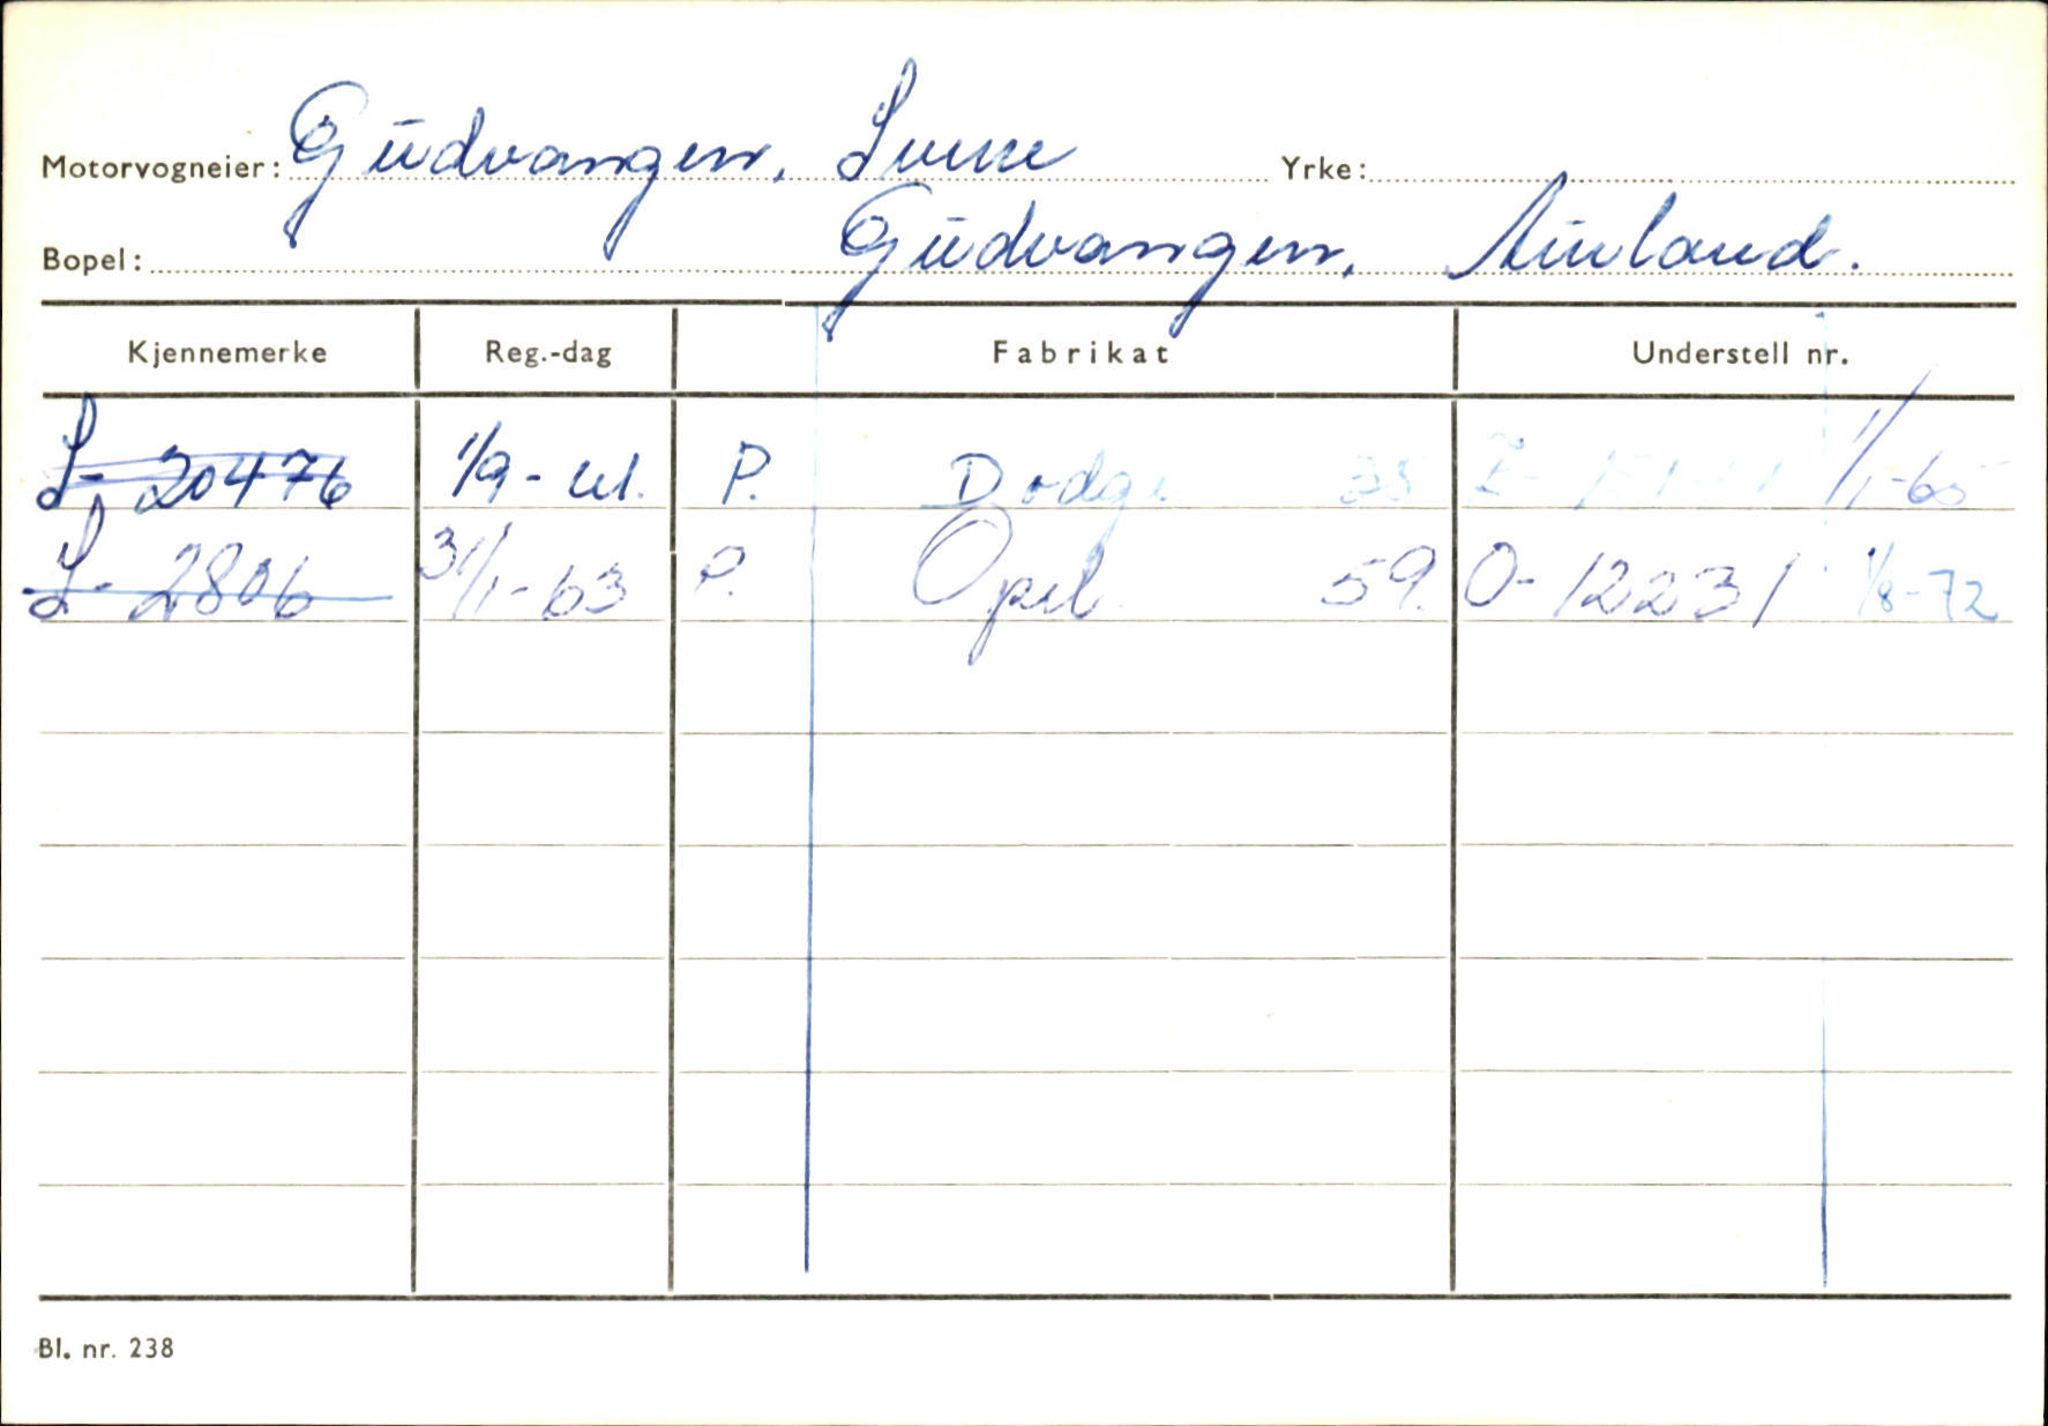 Motorvogneier: Gudvangen, Sverre Yrke:
Bopel: Gudvangen, Aurland.
Kjennemerke Reg.-dag Fabrikat Understell nr.
S- 20476 1/9-61. P. Dodge 38 1/1-65
S- 2806 31/1-63 P. Opel 59. O-12231 1/8-72
Bl. nr. 238